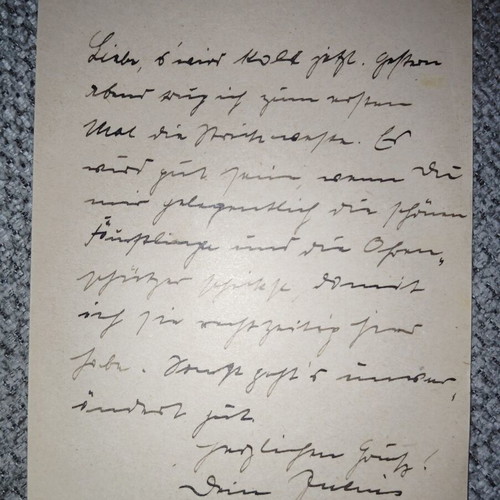 Liebe, s'wird kalt jetzt. Gestern
abend trug ich zum ersten
Mal die Strickweste. Es
wird gut sein, wenn Du
mir gelegentlich die schönen
Fäustlinge und die Ohren„
schützer schickst, damit
ich sie rechtzeitig hier
habe. Sonst geht's unver„
ändert gut.
Herzlichen Gruß!
Dein Julius